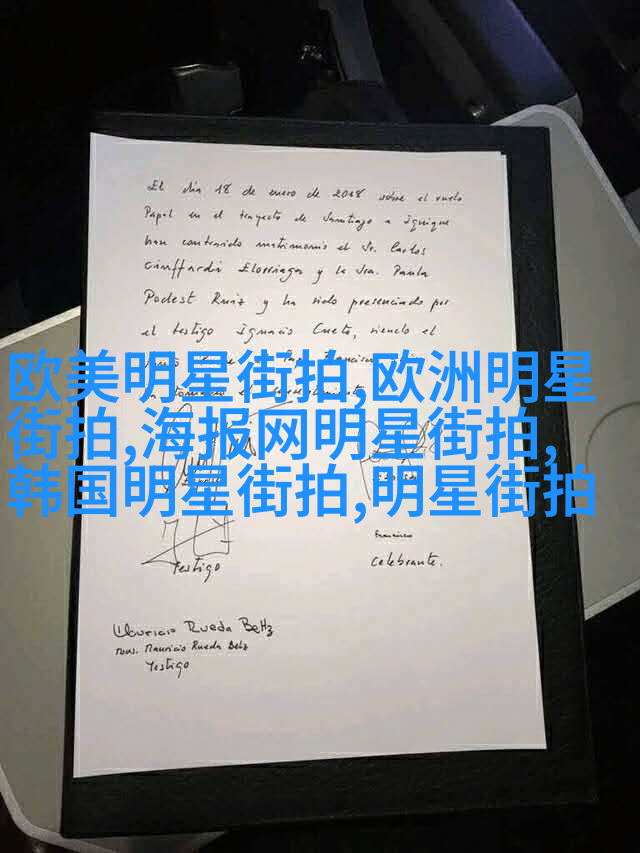 El día 18 de enero de 2018 sobre el vuelo
Papal en el trayecto de Santiago a Iquique
han contraido matrimonio el Sr. Carlos
Ciuffardi Elorriaga y la Sra. Paula
Podest Ruiz y ha sido presenciado por
el testigo Ignacio Cueto, siendo el
欧美明星街拍,欧洲明星
街拍,海报网明星街拍,
韩国明星街拍,明星街拍
Testigo
Francisco
Celebrante.
Mauricio Rueda Beltz
Mons. Mauricio Rueda Beltz
Testigo